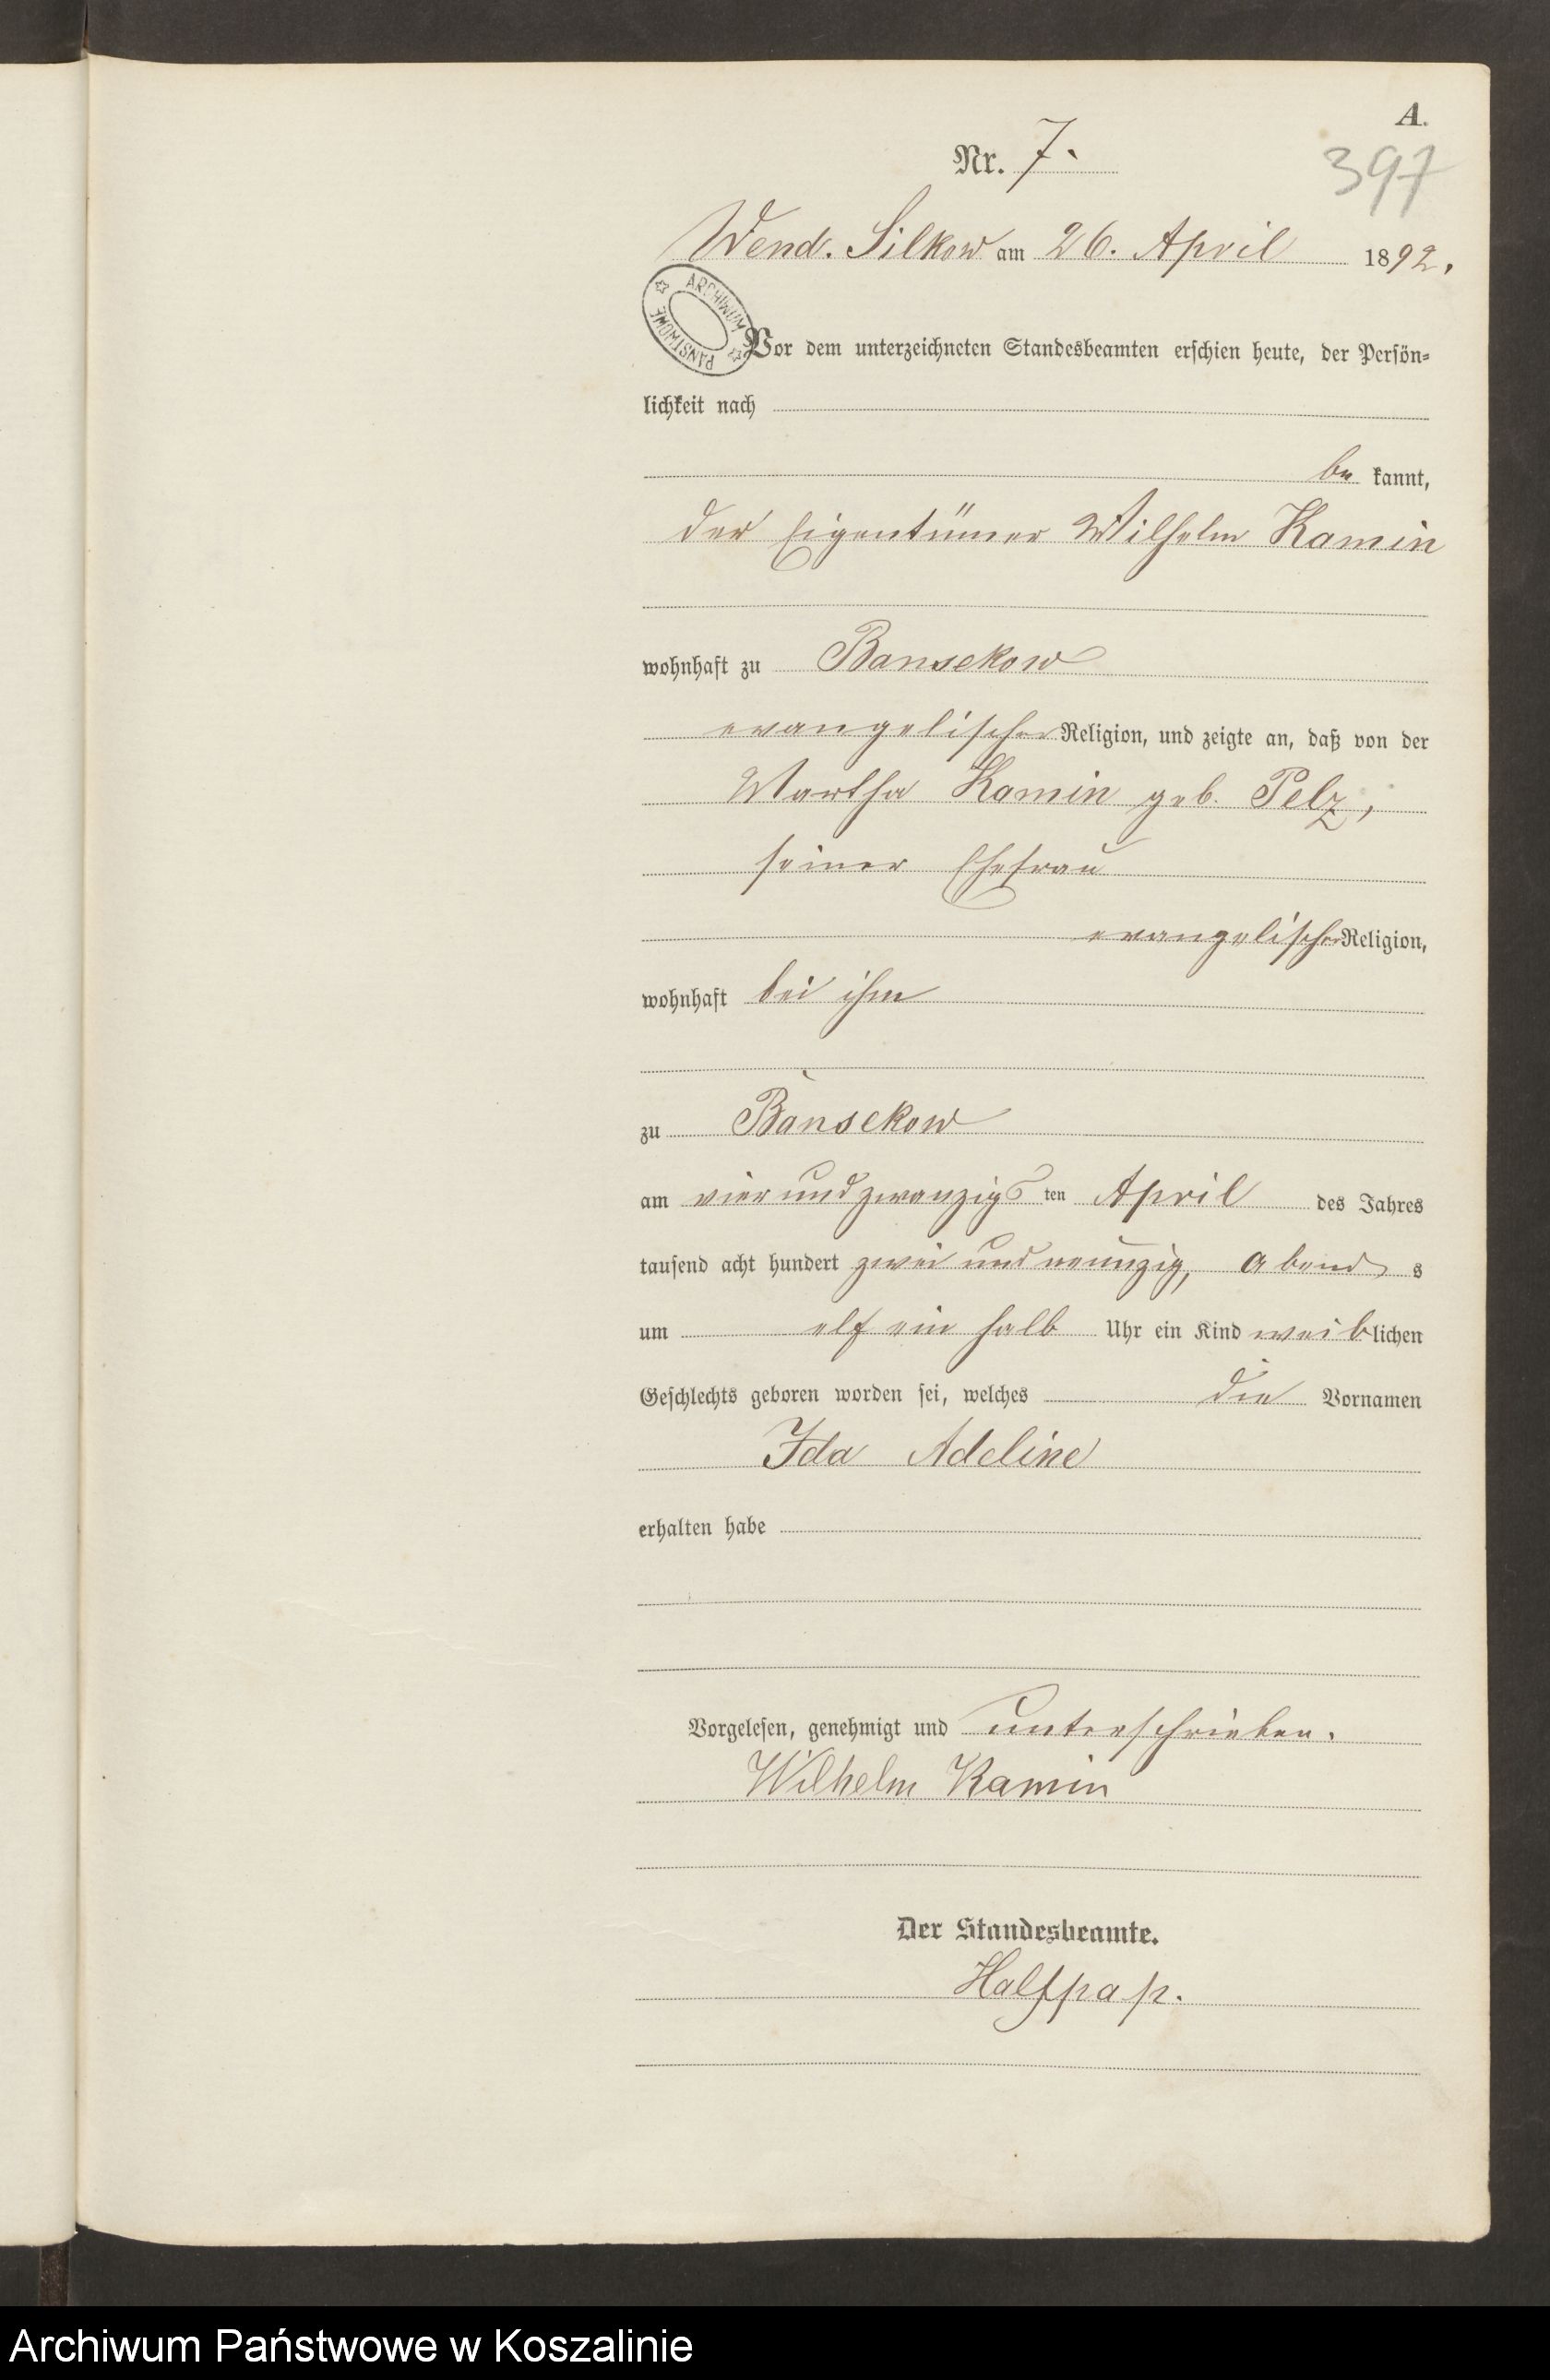 A.
Nr. 7.
397
Wend. Silkow am 26. April 1892.
ARCHIWUM PAŃSTWOWE
Vor dem unterzeichneten Standesbeamten erschien heute, der Persön=
lichkeit nach
be kannt,
der Eigentümer Wilhelm Kamin
wohnhaft zu Bansekow
evangelischer Religion, und zeigte an, daß von der
Martha Kamin geb. Pelz,
seiner Ehefrau
evangelischer Religion,
wohnhaft bei ihm
zu Bansekow
am vier und zwanzigsten April des Jahres
tausend acht hundert zwei und neunzig, Abends
um elf ein halb Uhr ein Kind weiblichen
Geschlechts geboren worden sei, welches die Vornamen
Ida Adeline
erhalten habe
Vorgelesen, genehmigt und unterschrieben.
Wilhelm Kamin
Der Standesbeamte.
Halfpap.
Archiwum Państwowe w Koszalinie